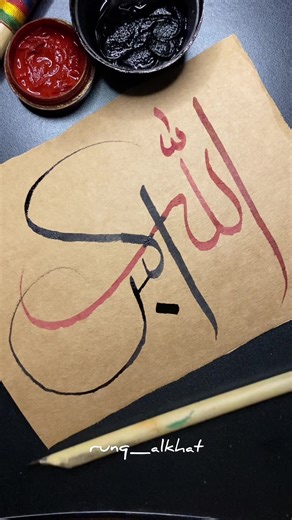 الله
أكبر
rung_alkhat